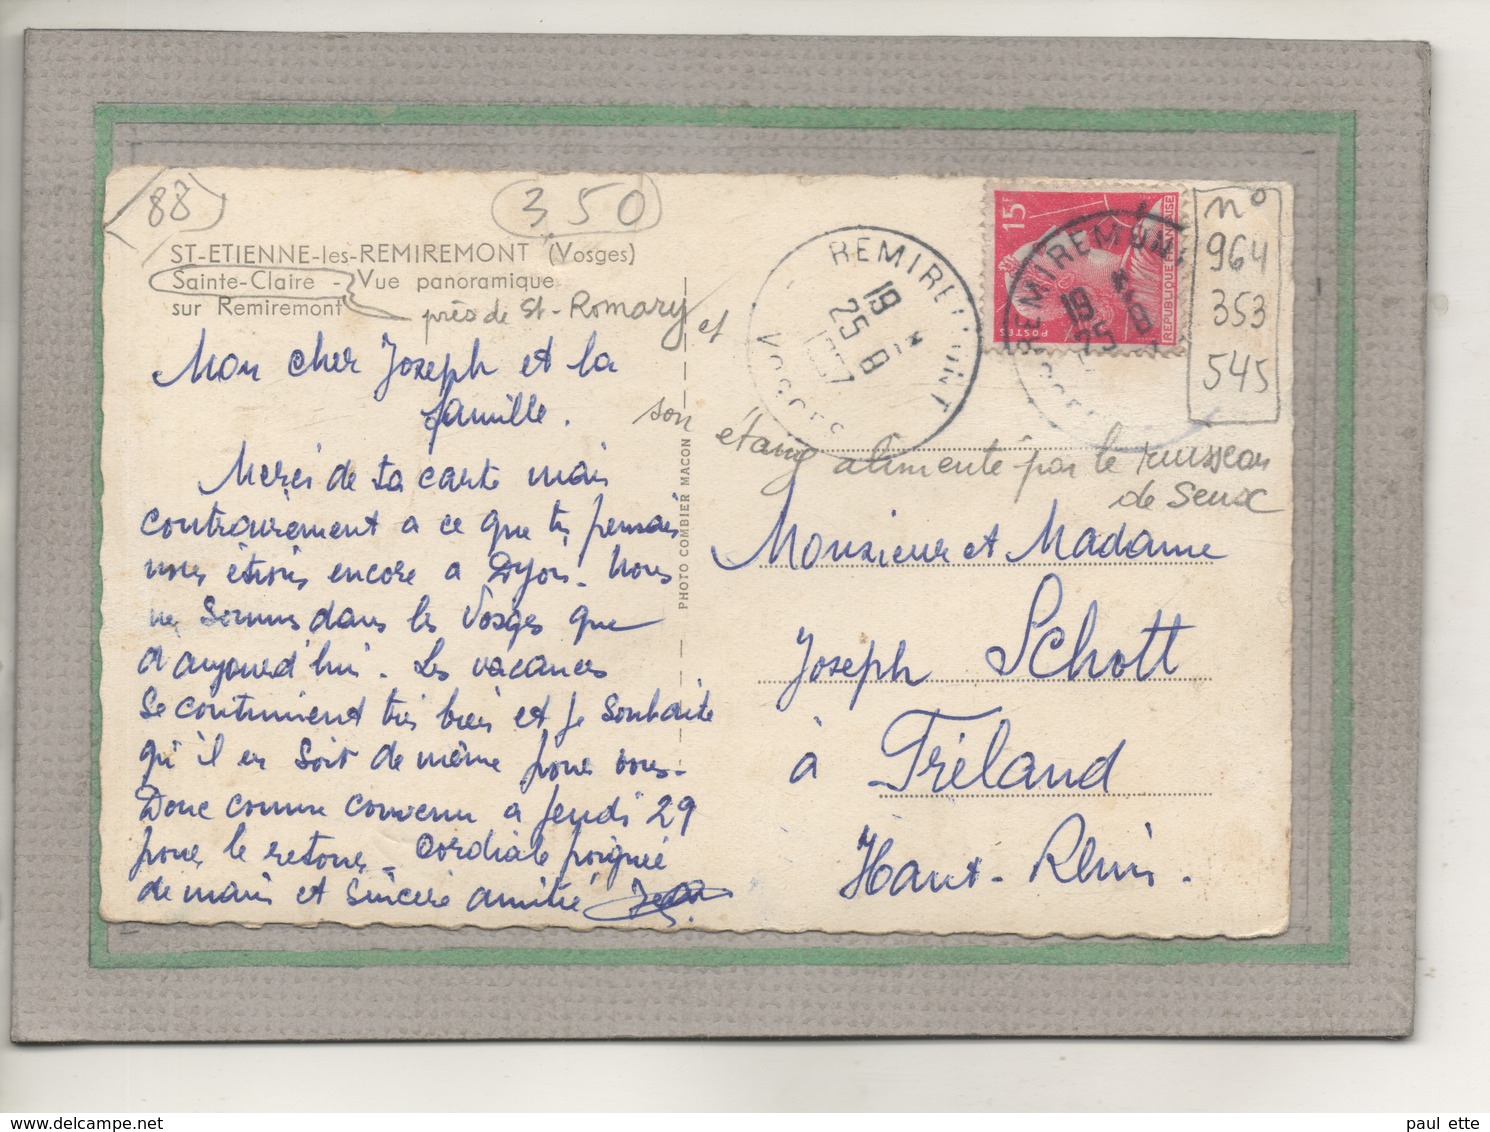 (88)
350
ST-ETIENNE-les-REMIREMONT (Vosges)
Sainte-Claire - Vue panoramique
sur Remiremont
près de St-Romary et
son étang alimenté par le ruisseau
de Seux
Mon cher Joseph et la
famille.
Merci de ta carte mais
contrairement a ce que tu pensais
nous étions encore a Dijon. Nous
ne sommes dans les Vosges que
d'aujourd'hui. Les vacances
se continuent très bien et je souhaite
qu'il en soit de même pour vous.
Donc comme convenu a jeudi 29
pour le retour. Cordiale poignée
de main et sincère amitié
PHOTO COMBIER MACON
REMIREMONT
19 H
25 - 8
VOSGES
15F
POSTES
REPUBLIQUE FRANÇAISE
REMIREMONT
19 H
25 8
VOSGES
n°
964
353
545
Monsieur et Madame
Joseph Schott
à Fréland
Haut-Rhin.
paul ette